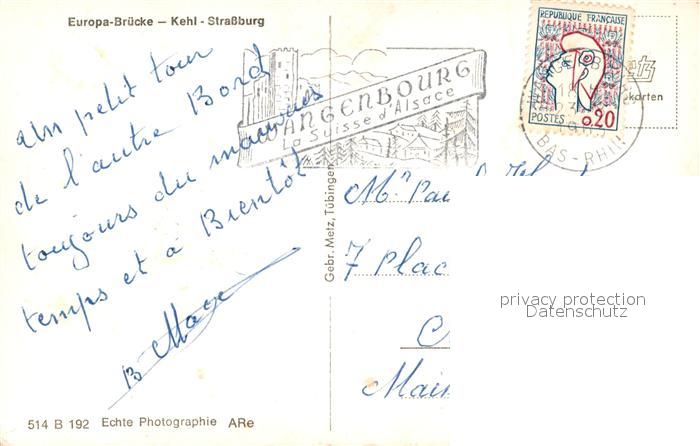 Europa-Brücke — Kehl - Straßburg
un petit tour
de l'autre Bord
toujours du mauvais
temps et à Bientôt
B
WANGENBOURG
La Suisse d'Alsace
REPUBLIQUE FRANÇAISE
POSTES 0,20
BAS-RHIN
karten
Gebr. Metz, Tübingen
Mr
7 Plac
privacy protection
Datenschutz
514 B 192 Echte Photographie ARe